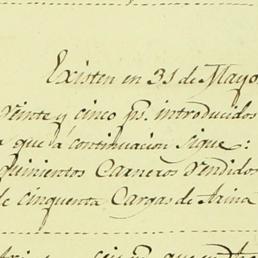 Existen en 31 de Mayo
veinte y cinco ps. introducidos
que á continuacion sigue:
quinientos Carneros vendidos
de cinquenta Cargas de Arina